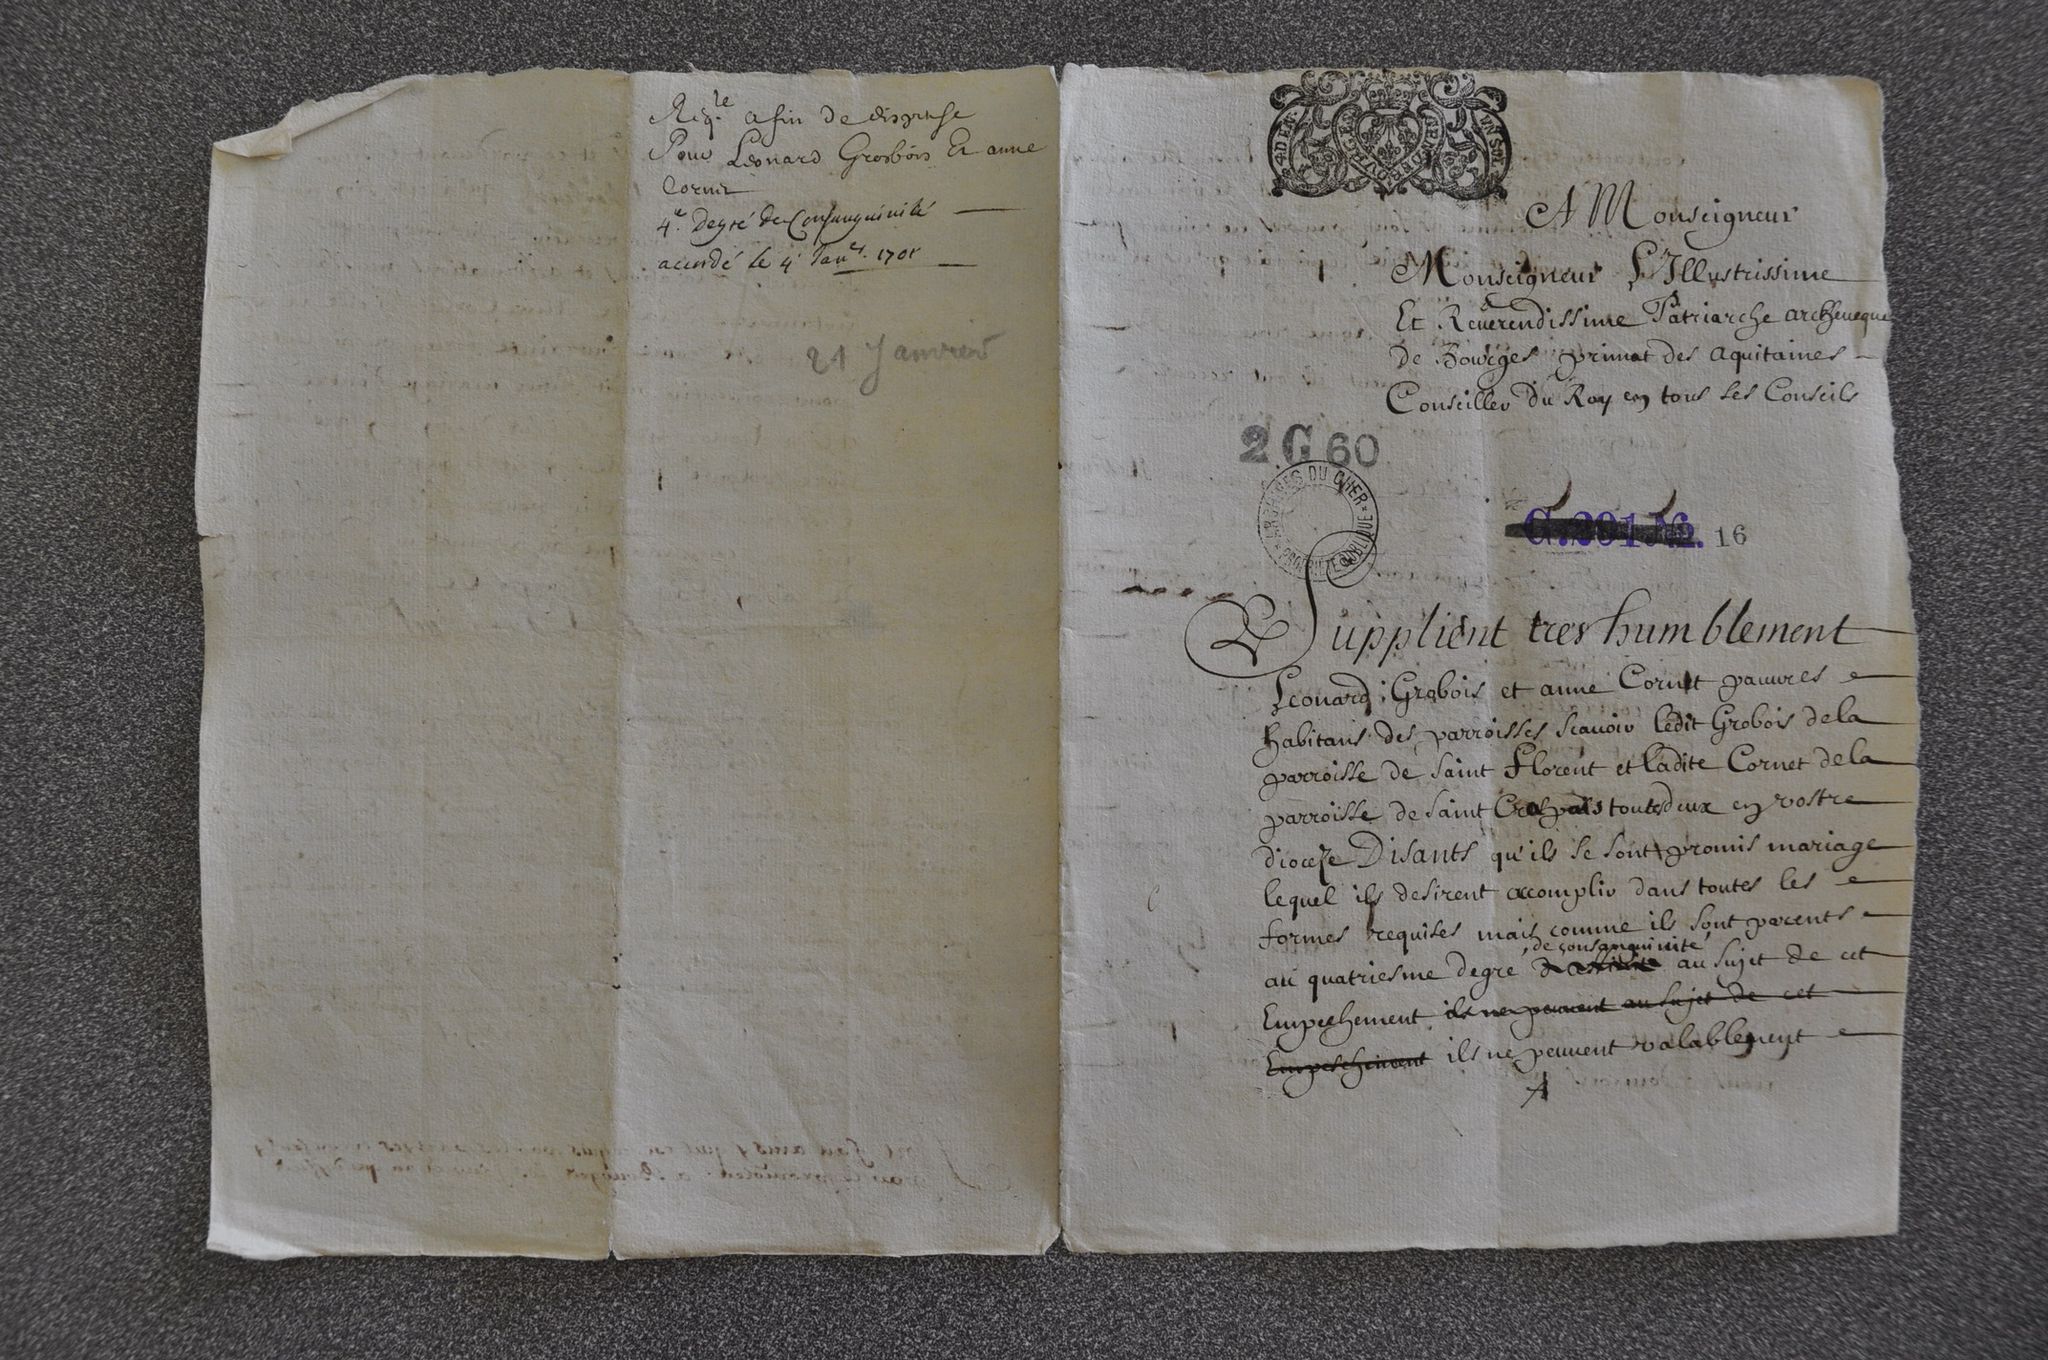 Reqte afin de dispense
Pour Léonard Grosbois Et anne
Cornet
4e. degré de Consanguinité
accordé le 4 Janer. 1701
21 Janvier
4 DEN.
UN SOL
A Monseigneur
Monseigneur L'Illustrissime
Et Reverendissime Patriarche archeveque
de Bourges primat des aquitaines
Conseiller du Roy en tous ses Conseils
2 G 60
ARCHIVES DU CHER
PROPRIÉTÉ PUBLIQUE
16
Supplient tres humblement
Leonard Grobois et anne Cornet pauures
habitans des parroisses scauoir ledit Grobois de la
parroisse de saint Florent et ladite Cornet de la
parroisse de saint toutsdeux en vostre
dioceze Disants qu'ils se sont promis mariage
lequel ils desirent accomplir dans toutes les
formes requises mais comme ils sont parents
de consanguinité
au quatriesme degré au sujet de cet
Empeshement ils ne peuuent au sujet de cet
Empeschement ils ne peuuent valablement
A